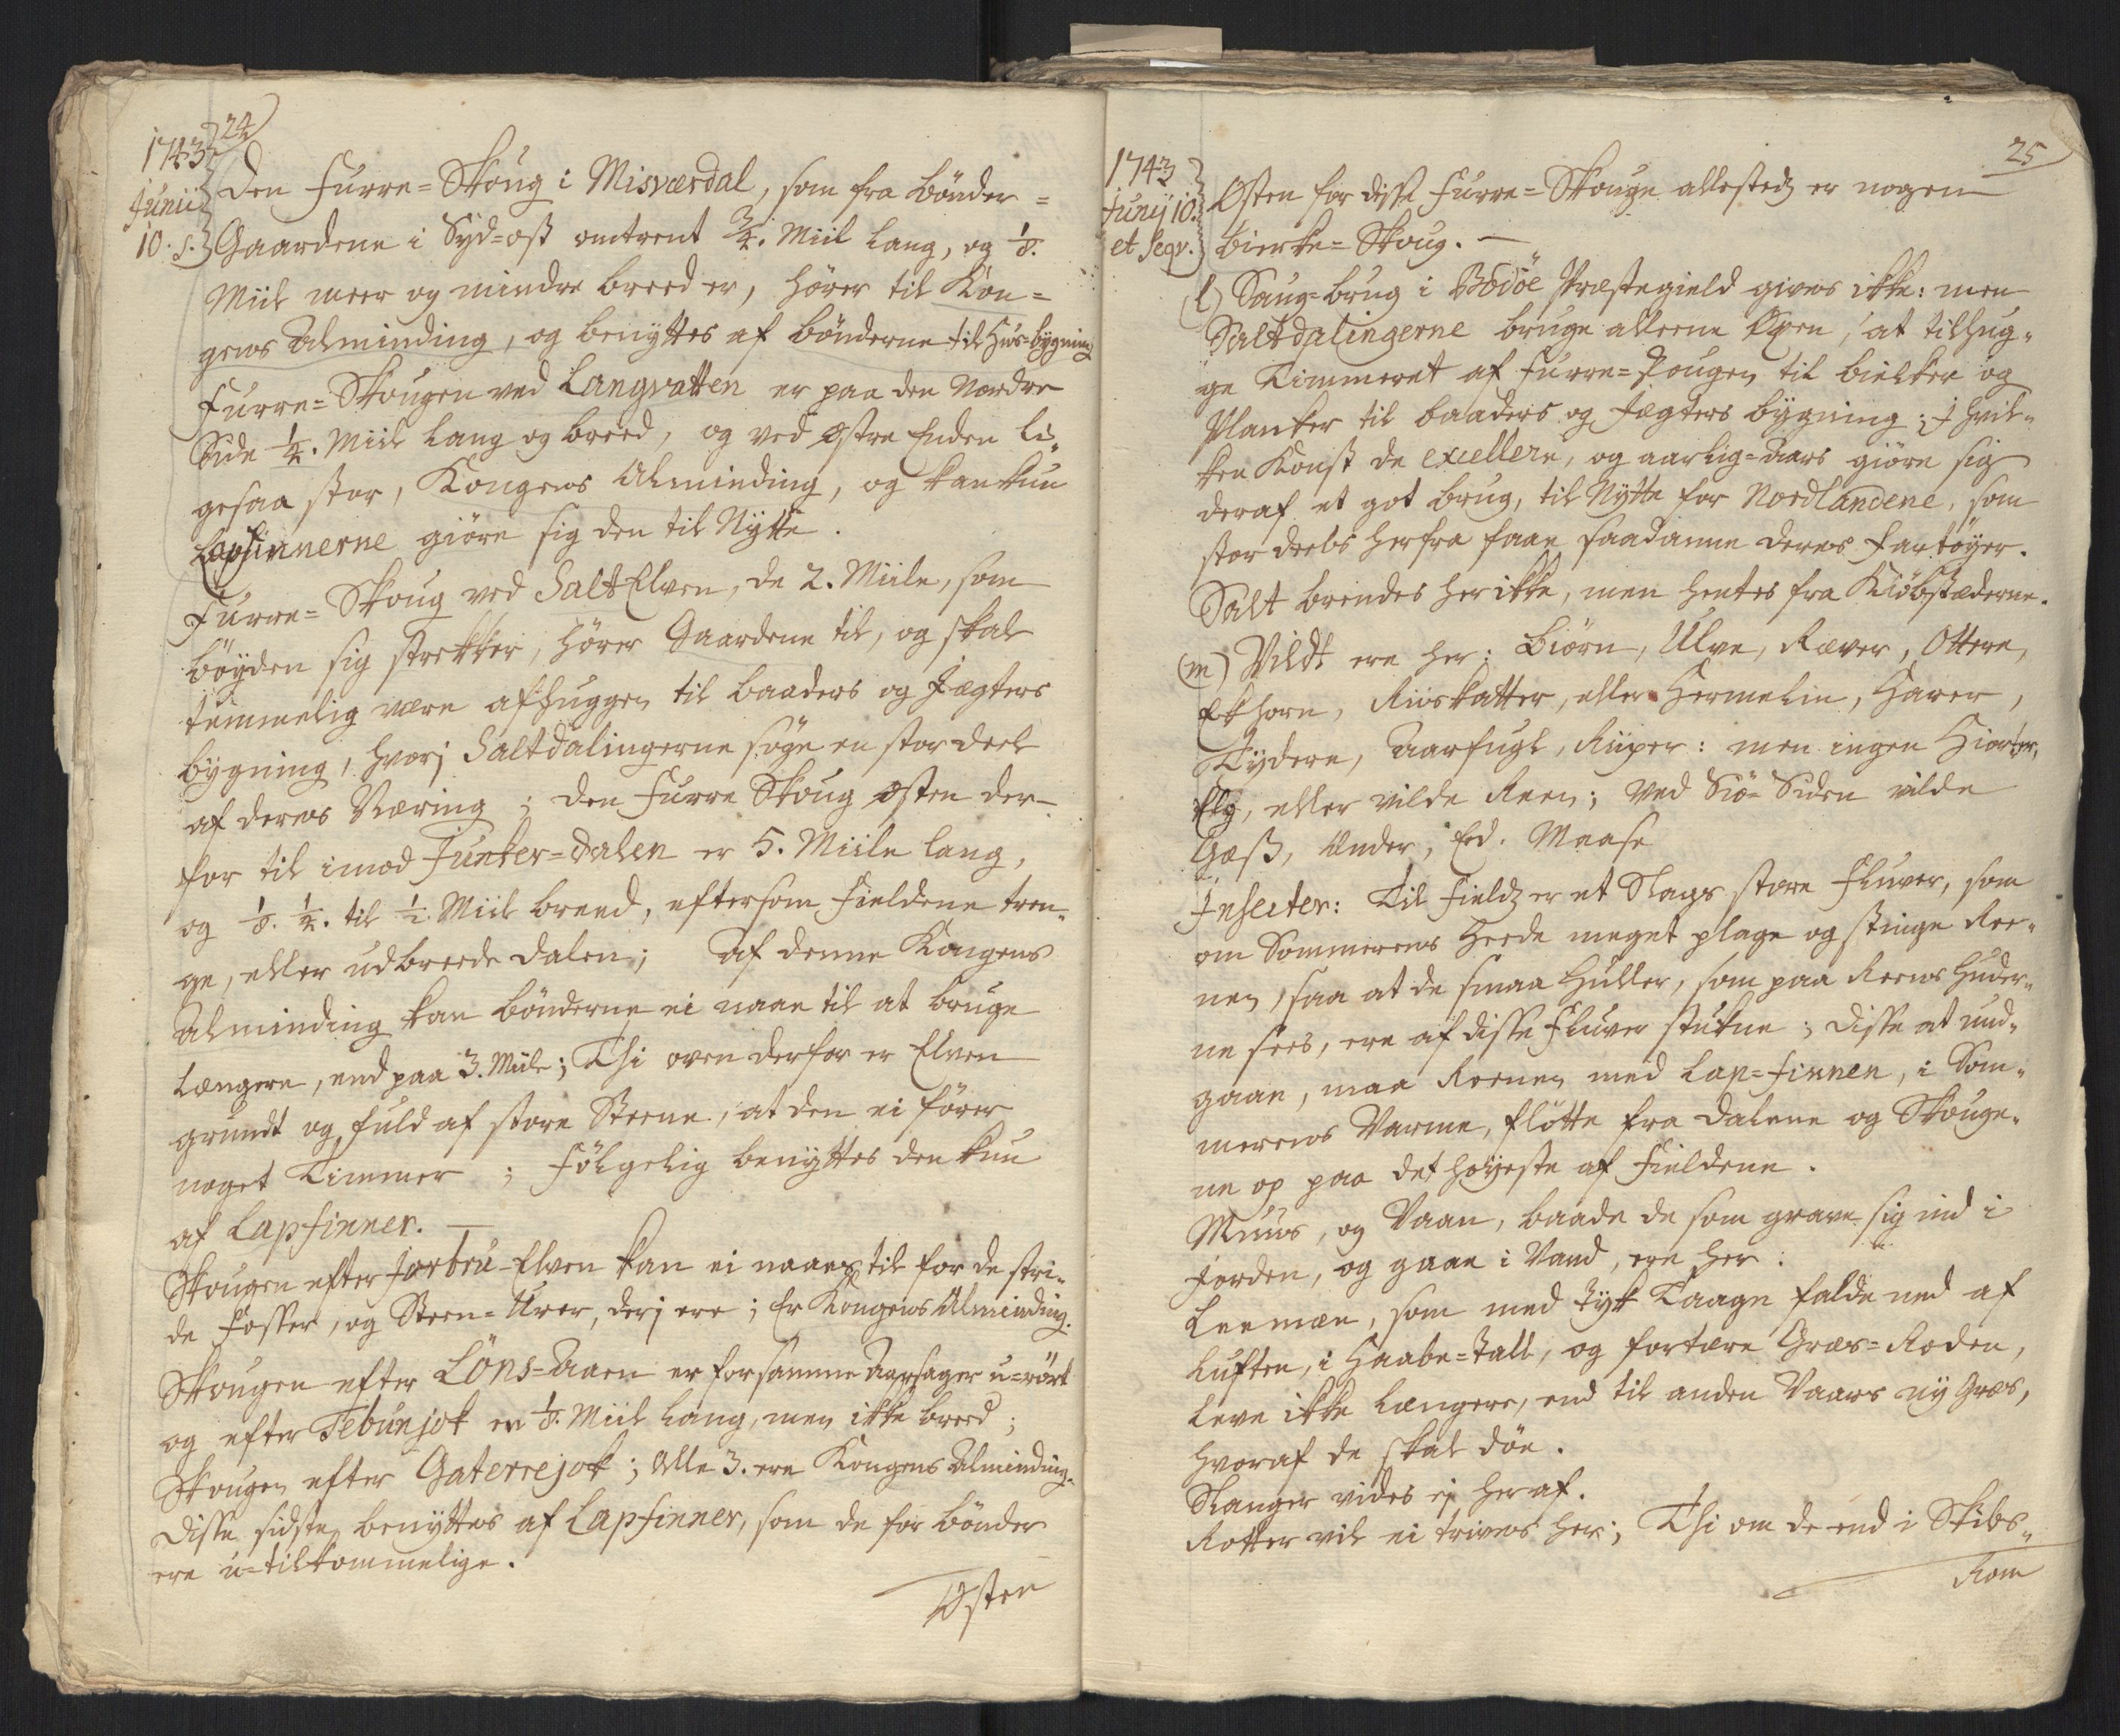 24
1743
Junii
10. s.
Den Furre=Skoug i Misværdal, som fra Bönder=
Gaardene i Syd=ost omtrent 3/4. Miil lang, og 1/8.
Miil meer og mindre breed er, hörer til Kon=
gens Alminding, og benyttes af Bönderne til Huus-bygning
Furre=Skougen ved Langvatten er paa den Nordre
Side 1/4. Miil lang og breed, og ved østre Enden li=
gesaa stor, Kongens Alminding, og kan kun
Lapfinnerne giöre sig den til Nytte.
Furre=Skoug ved Salt Elven, de 2. Miile, som
böyden sig strekker, hörer Gaardene til, og skal
temmelig være afhuggen til Baaders og Jægters
bygning, hvorj Saltdalingerne söge en stor deel
af deres Næring; den Furre Skoug østen der-
for til imod Junker=dalen er 5. Miile lang,
og 1/8. 1/4. til 1/2 Miil breed, eftersom Fieldene tren=
ge, eller udbreede dalen; Af denne Kongens
Alminding kan bönderne ei naae til at bruge
længere, end paa 3. Mile; Thi oven derfor er Elven
grundt og fuld af store Steene, at den ei förer
noget Timmer; Fölgelig benyttes den kun
af Lapfinner. —
Skougen efter Jarbru-Elven kan ei naaes til for de stri=
de Fosser, og Steen=Urer, derj ere; Er Kongens Alminding.
Skougen efter Löns=Aaen er for samme Aarsager u=rört
og efter Tebunjok en 1/8. Miil lang, men ikke breed;
Skougen efter Gaterrejok; Alle 3. ere Kongens Alminding.
Disse sidste benyttes af Lapfinner, som de for bönder
ere u=tilkommelige.
Østen
25
1743
Junij 10.
et seqv.
Østen for disse Furre=Skouge allestedz er nogen
bierke=Skoug. —
(l) Saug=brug i Bodöe Præstegield gives ikke: men
Saltdalingerne bruge alleene Øxen, at tilhug=
ge Timmeret af Furre=Skougen til bielker og
Planker til baaders og Jægters bygning; J hvil=
ken Konst de excellere, og aarlig=Aars giöre sig
deraf et got brug, til Nytte for Nordlandene, som
stor deels herfra faae saadanne deres Fartöyer.
Salt brendes her ikke, men hentes fra Kiöbstæderne.
(m) Vildt ere her: Biörn, Ulve, Ræver, Ottere,
Ekhorn, Röiskatter, eller Hermelin, Harer,
Tydere, Aarfugl, Riiper: men ingen Hiorter,
Elg, eller vilde Reen; ved Siö=Siden vilde
Gæss, Ænder, Ed. Maase
Insecter: Til Fieldz er et Slags store Fluer, som
om Sommerens Heede meget plage og stinge Ree=
nen, saa at de smaa Huller, som paa Reens Huder=
ne sees, ere af disse Fluer stukne; disse at und=
gaae, maa Reenen med Lap=finnen, i Som=
merens Varme, flötte fra dalene og Skouge=
ne op paa det höyeste af Fieldene.
Muus, og Vaan, baade de som grave sig ind i
Jorden, og gaae i Vand, ere her.
Leemæn, som med tyk Taage falde ned af
Luften, i Haabe=tall, og fortære Græs=Roden,
leve ikke længere, end til anden Vaars ny Græs,
hvoraf de skal döe.
Slanger vides ej her af.
Rotter vil ei trives her; Thi om de end i Skibs=
Rom